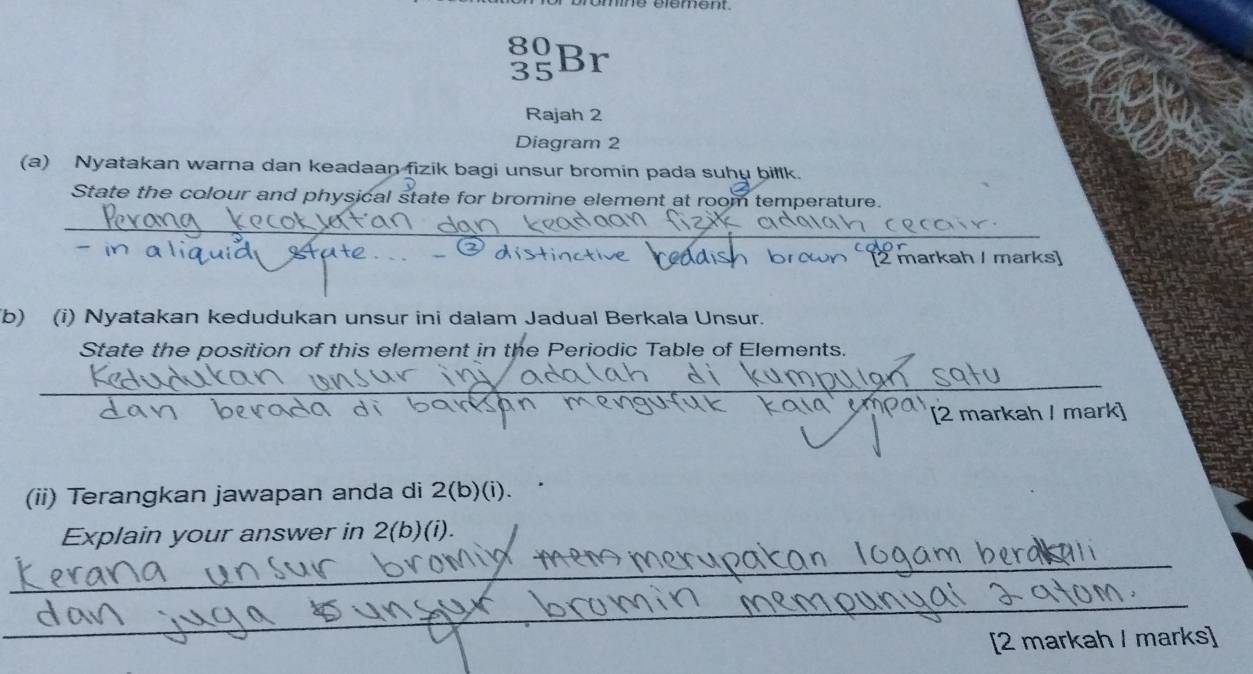 bromine element.
80
35 Br
Rajah 2
Diagram 2
(a) Nyatakan warna dan keadaan fizik bagi unsur bromin pada suhu bilik.
State the colour and physical state for bromine element at room temperature.
Perang kecoklatan dan keadaan fizik adalah cecair.
- in a liquid state... - ② distinctive reddish brown color
[2 markah / marks]
b) (i) Nyatakan kedudukan unsur ini dalam Jadual Berkala Unsur.
State the position of this element in the Periodic Table of Elements.
Kedudukan unsur ini adalah di kumpulan satu
dan berada di barisan mengufuk kala empat
[2 markah / mark]
(ii) Terangkan jawapan anda di 2(b)(i).
Explain your answer in 2(b)(i).
Kerana unsur bromin merupakan logam berakali
dan juga unsur bromin mempunyai 2 atom.
[2 markah / marks]